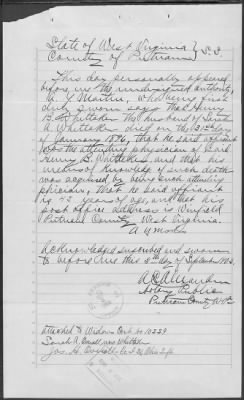 State of West Virginia } S.S.
County of Putnam
This day personally appeared
before me the undersigned authority
A. Y. Martin, who being first
duly sworn says that Henry
B. Whittaker the husband of Sarah
A. Whittaker died on the 31st day
of January 1876, that he said affiant
was the attending physician of said
Henry B. Whittaker, and that his
means of knowledge of such death
was acquired by being such attending
phicician, that he said affiant
is 73 years of age, and that his
post office address is Winfield
Putnam County, West Virginia.
A Y
Acknowledged subscribed and sworn
to before me this 5th day of September 1903.
Notary Public
Putnam County W.Va.
Attached to Widows Cert. No 10239
Sarah A. was Whittaker
Jas. H. Co. Ohio Inf.